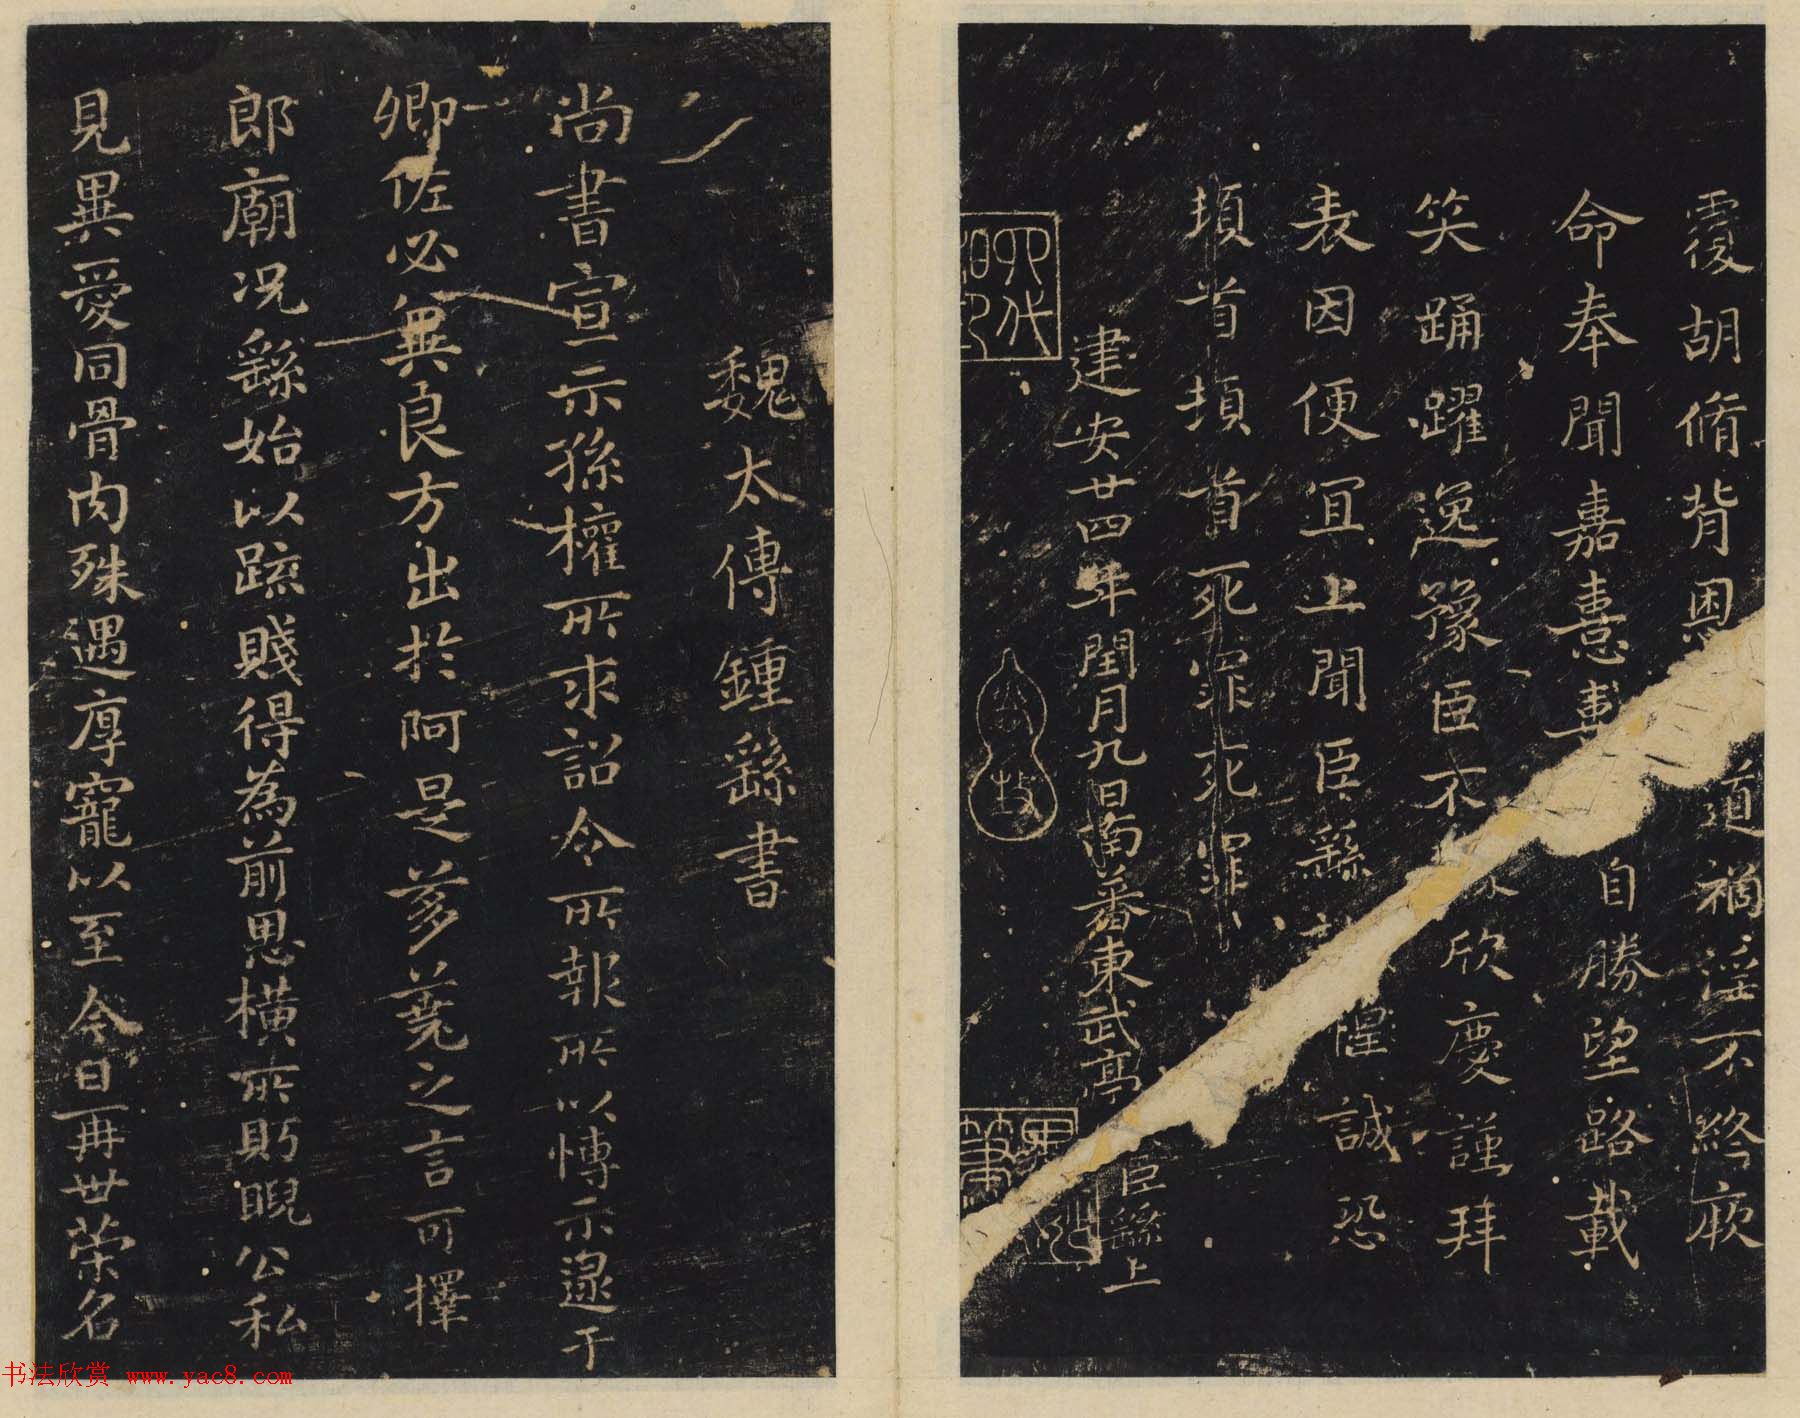 覆胡脩背恩道禍淫不終厥
命奉聞嘉憙憙自勝望路載
笑踊躍逸豫臣不欣慶謹拜
表因便宜上聞臣繇惶誠恐
頓首頓首死罪死罪
建安廿四年閏月九日南蕃東武亭臣繇上
魏太傅鍾繇書
尚書宣示孫權所求詔令所報所以博示逮于
卿佐必冀良方出於阿是芻蕘之言可擇
郎廟况繇始以疏賤得為前恩橫所眄睨公私
見異愛同骨肉殊遇厚寵以至今日再世荣名
书法欣赏 www.yac8.com